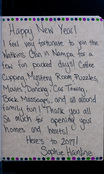 Happy New Year!
I feel very fortunate to join the
Watkins Clan in Nampa for a
few fun packed days! Coffee
Cupping, Mystery Room, Puzzles,
Movies, Dancing, Car Towing,
Back Massages, and all around
family fun! Thank you all
so much for opening your
homes and hearts!
Here's to 2017!
Sophie